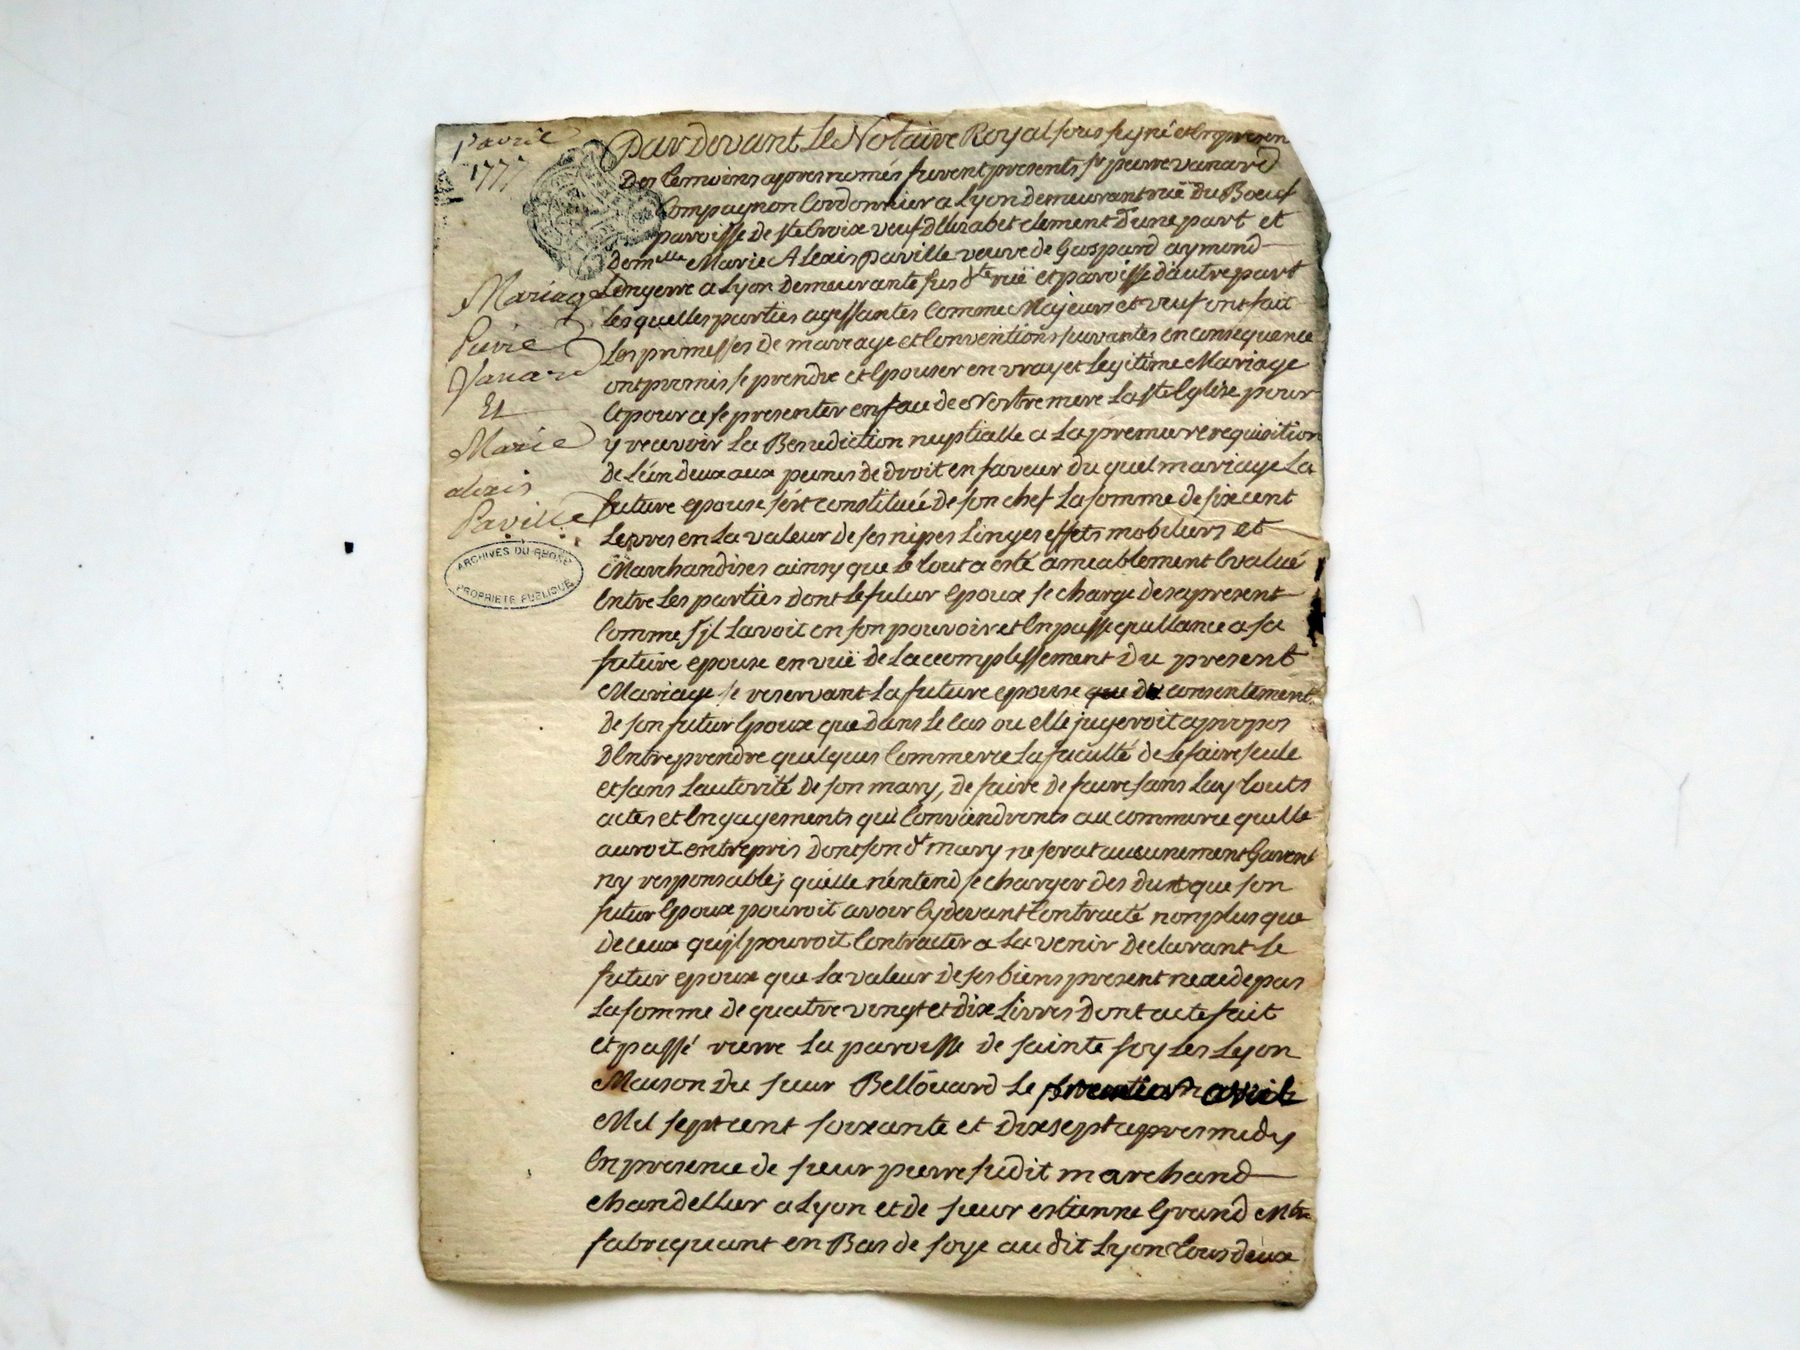 1er avril
1777
Mariage
Pierre
Vanard
Et
Marie
alexis
Paville
ARCHIVES DU RHONE
PROPRIETE PUBLIQUE
Pardevant Le Notaire Royal sous signé et En presen
Des temoins apres només furent presents sr pierre vanard
Compagnon Cordonnier a Lyon demeurant ruë Du Boeuf
paroisse de ste Croix veuf d'Elizabet clement d'une part et
Demlle Marie Alexis paville veuve de Gaspard aymond
Lengerre a Lyon Demeurante sus dte ruë et paroisse d'autre part
Lesquelles parties agissantes Comme Majeurs et veuf ont fait
Les promesses de mariage et Conventions suivantes en consequence
ont promis se prendre et Epouser en vray et Legitime Mariage
Et pour ce se presenter en face de Nostre mere La ste Eglise pour
y recevoir La Benediction nuptialle a La premiere requisition
de L'un deux aux peines de droit en faveur du quel mariage La
future epouse s'est constituée de son chef La somme de six cent
Livres en La valeur de ses nipes Linges effets mobiliers et
Marchandises ainsy que Le tout a esté amiablement Evalué
Entre Les parties dont Le futur Epoux se charge des a present
Comme s'jl Lavoit en son pouvoir et En passe quittance a sa
future epouse en vuë de Laccomplissement du present
Mariage se reservant La future epouse que du consentement
de son futur Epoux que dans Le cas ou elle jugeroit apropos
D'Entreprendre quelques Commerce La faculté de Le faire seule
et sans L'autorité de son mary, de faire de faire sans Luy touts
actes et Engagements qui Conviendronts au commerce quelle
auroit entrepris dont son dt mary ne serat aucunement Garent
ny responsable; quelle n'entend se charger des dettes que son
futur Epoux pouroit avoir Cy devant Contracté non plus que
de ceux qu'jl pouroit Contracter a La venir declarant Le
futur epoux que La valeur de ses biens present nexcede pas
La somme de quatre vingt et dix Livres dont acte fait
et passé riere La paroisse de sainte foy Les Lyon
Maison du sieur Bellouard Le premier avril
Mil sept cent soixante et dix sept apres midy
En presence de sieur pierre judit marchand
chandellier a Lyon et de sieur estienne Grand Mtre
fabriquant en Bas de soye au dit Lyon tous deux